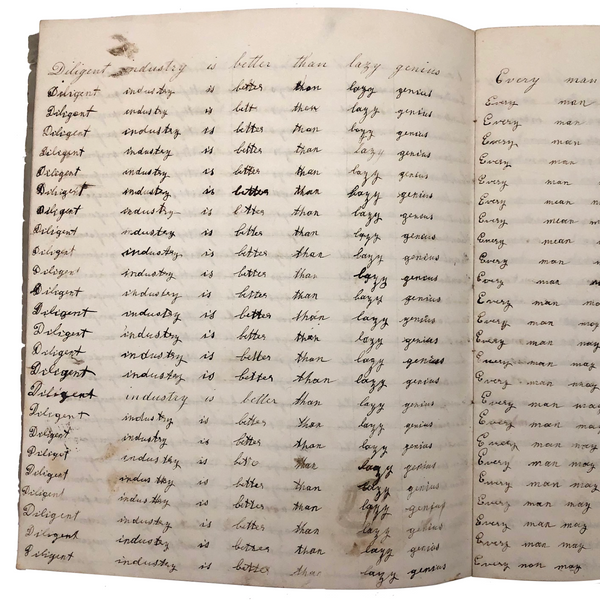 Diligent industry is better than lazy genius
Diligent industry is better than lazy genius
Diligent industry is bett than lazy genius
Diligent industry is better than lazy genius
Diligent industry is better than lazy genius
Diligent industry is better than lazy genius
Diligent industry is better than lazy genius
Diligent industry is better than lazy genius
Diligent industry is better than lazy genius
Diligent industry is better than lazy genius
Diligent industry is better than lazy genius
Diligent industry is better than lazy genius
Diligent industry is better than lazy genius
Diligent industry is better than lazy genius
Diligent industry is better than lazy genius
Diligent industry is better than lazy genius
Diligent industry is better than lazy genius
Diligent industry is better than lazy genius
Diligent industry is better than lazy genius
Diligent industry is than lazy genius
Diligent industry is better than lazy genius
Diligent industry is better than lazy genius
Diligent industry is better than lazy genius
Diligent industry is better than lazy genius
Diligent industry is better than lazy genius
Every man
Every man
Every man
Every man
Every man
Every man
Every mean
Every mean
Every man
Every man
Every man may
Every man may
Every man may
Every man may
Every man may
Every man may
Every man may
Every man may
Every man may
Every man may
Every man may
Every man may
Every man may
Every man may